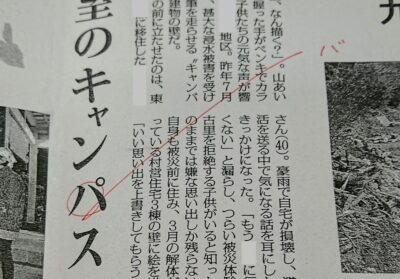 バ
、なん描く?」。山あい
握った手がペンキでカラ
子供たちの元気な声が響
地区。昨年7月
、甚大な浸水被害を受け
筆を走らせる〝キャンバ
建物の壁だ。
の前に立たせたのは、東
に移住した
さん㊵。豪雨で自宅が損壊し、
活を送る中で気になる話を耳にし
きっかけになった。「もう に
くない」と漏らし、つらい被災体
古里を拒絶する子供がいると知っ
のままでは嫌な思い出しか残らな
自身も被災前に住み、3月の解体
っている村営住宅3棟の壁に絵を
「いい思い出を上書きしてもらう
のキャンパス